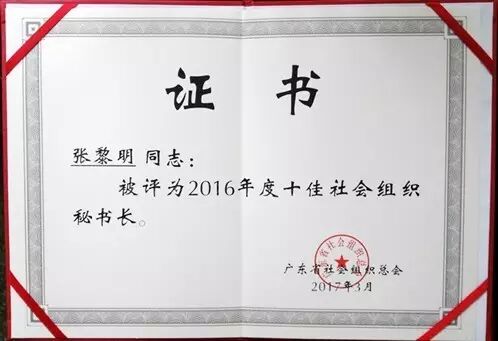 证 书
张黎明 同志：
被评为2016年度十佳社会组织
秘书长。
广东省社会组织总会
广东省社会组织总会
2017年3月